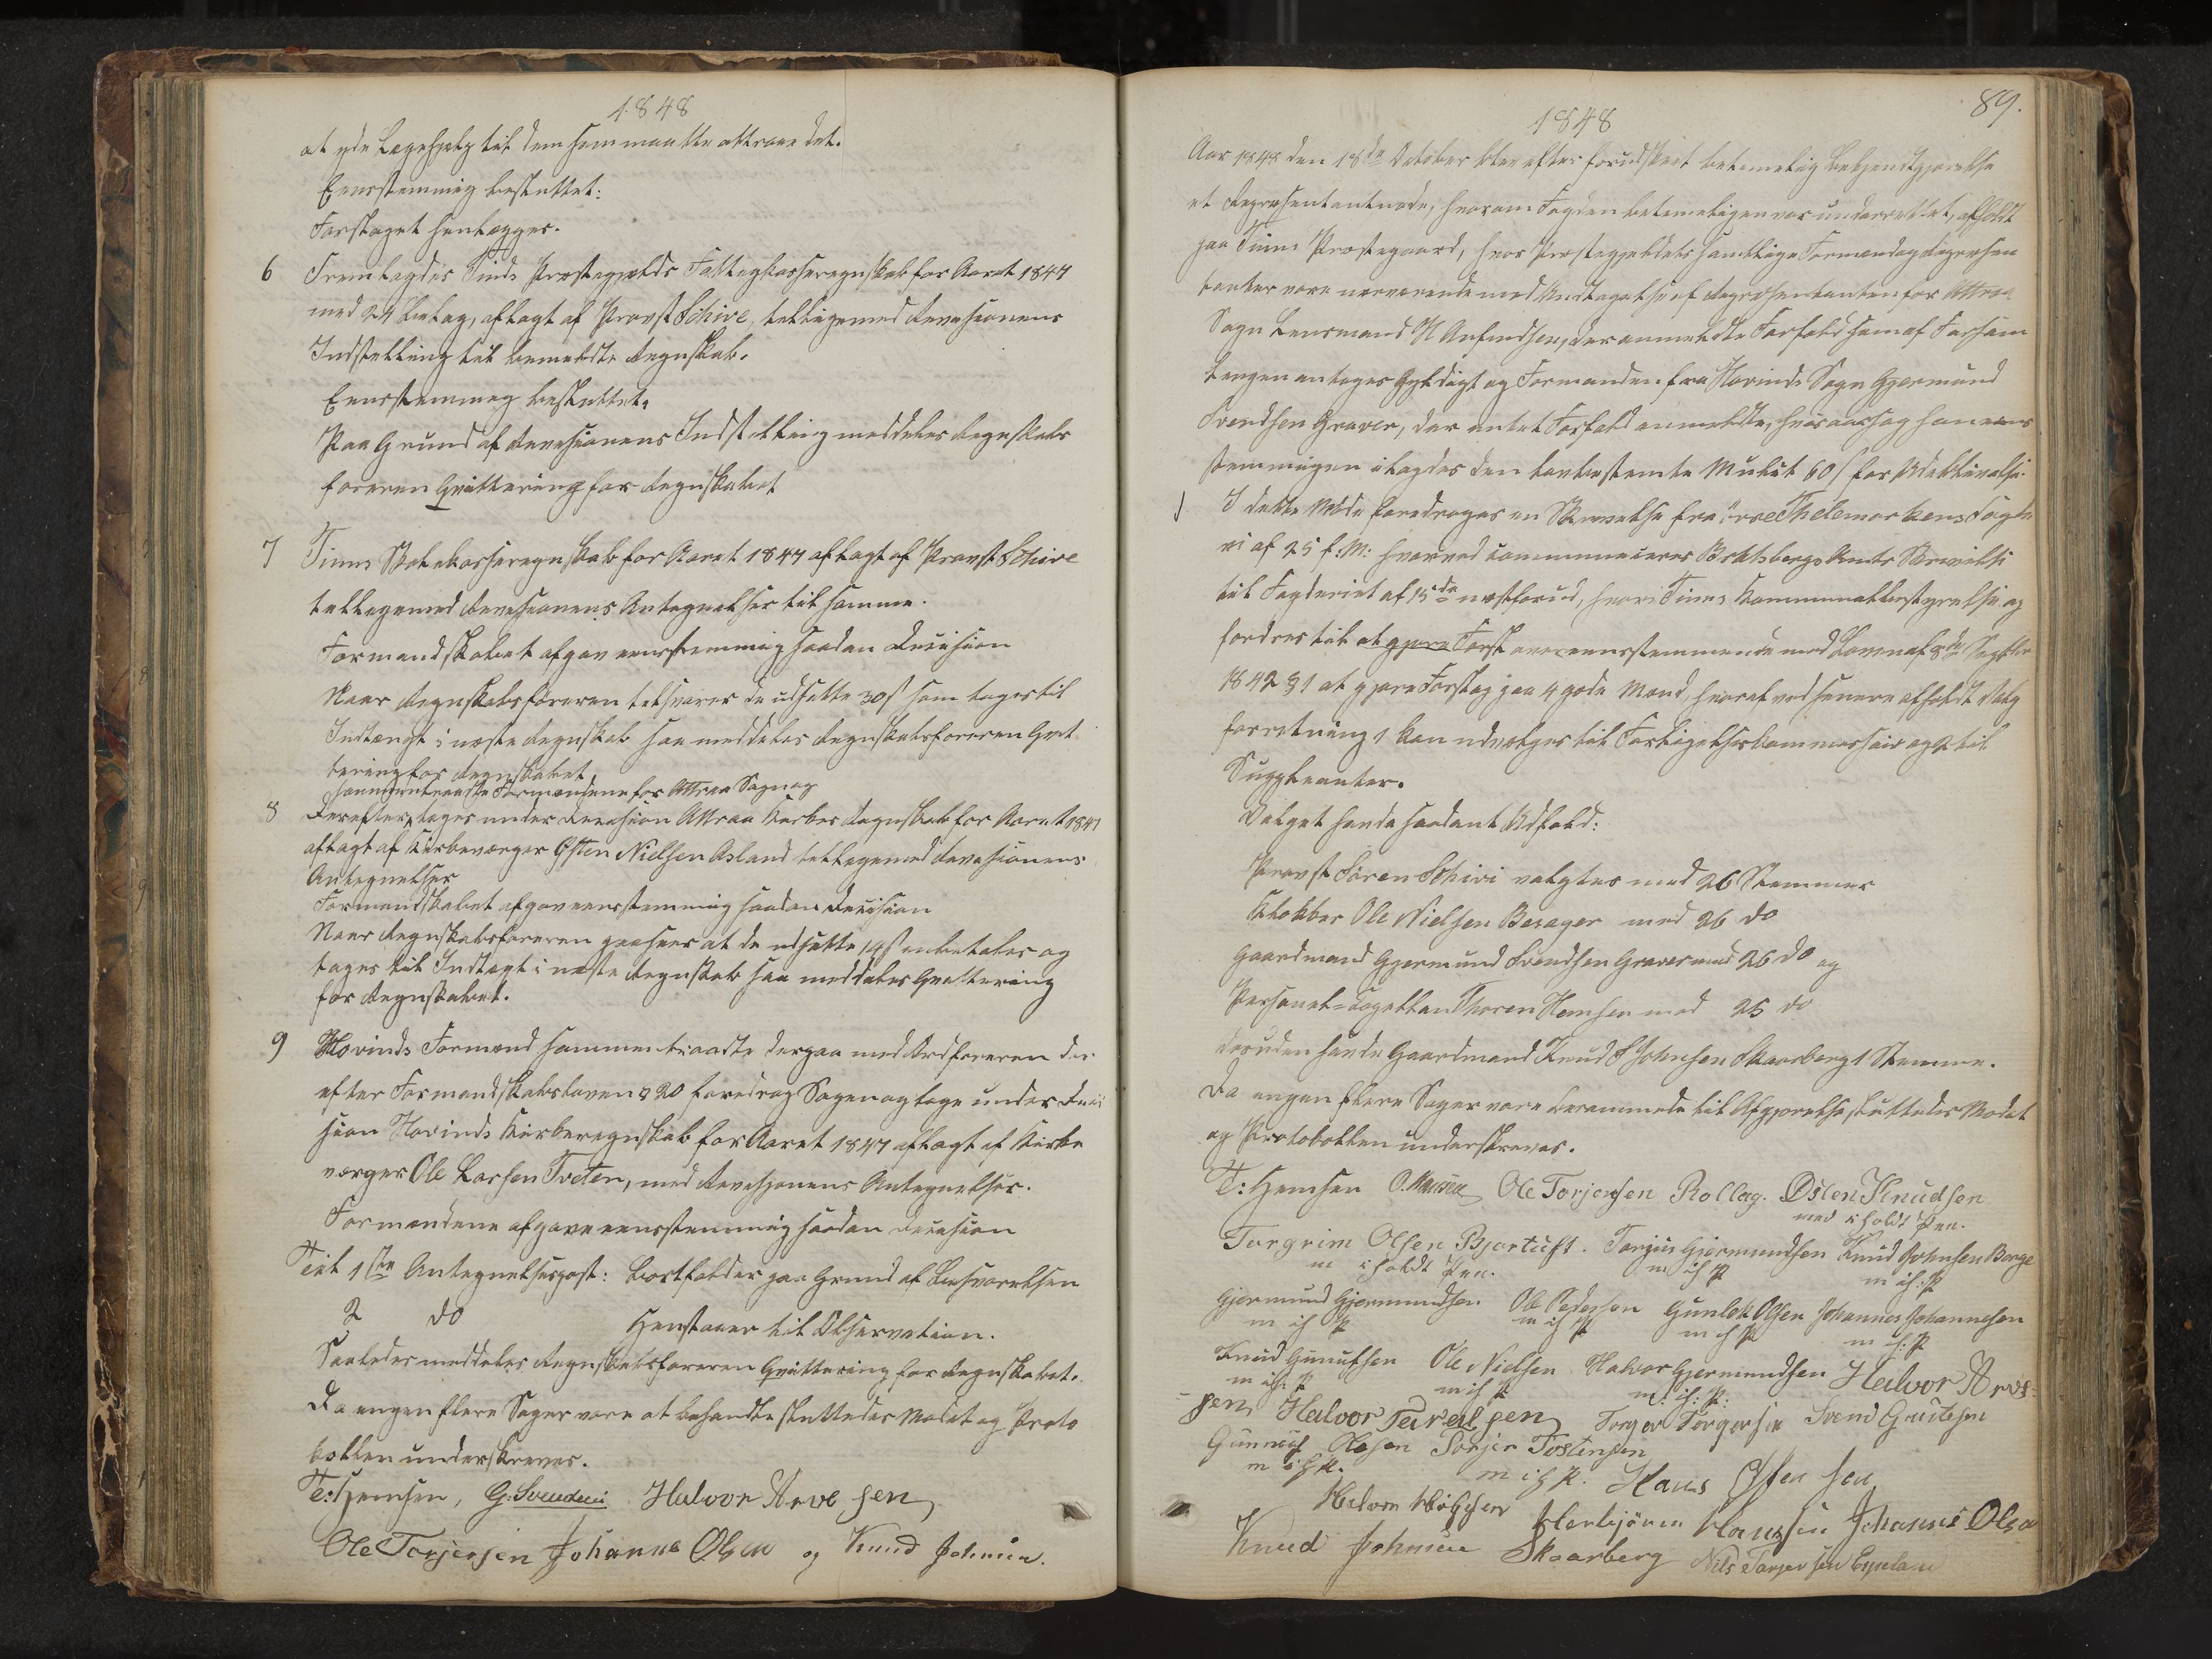 1848
at yde Lægehjelp til dem som maatte attraae det.
Eensstemmig besluttet:
Forslaget henlægges.
6 Fremlagdes Tinds Præstegjelds Fattigkasseregnskab for Aaret 1847
med 24 Bilag, aflagt af Provst Schive, tilligemed Revisionens
Indstilling til bemeldte Regnskab.
Eensstemmig besluttet.
Paa Grund af Revisionens Indstilling meddeles Regnskabs
føreren Qvittering for Regnskabet
7 Tinns Skolekasseregnskab for Aaret 1847 aflagt af Provst Schive
tilligemed Revisionens Antegnelser til samme.
Formandskabet afgav eensstemmig saadan Decision
Naar Regnskabsføreren tilsvarer de udsatte 30 s som tages til
Indtægt i næste Regnskab saa meddeles Regnskabsføreren Qvit
tering for Regnskabet
sammentraadte Formændene for Attraa Sogn og
8 Derefter toges under Decision Attraa Kirkes Regnskab for Aaret 1847
aflagt af Kirkeværger Østen Nielsen Asland tilligemed Revisionens
Antegnelser
Formandskabet afgav eensstemmig saadan Decision
Naar Regnskabsføreren at de udsatte 14 s og
tages til Indtægt i næste Regnskab saa meddeles Qvittering
for Regnskabet.
9 Hovinds Formænd sammentraadte derpaa med Ordføreren der
efter Formandskabsloven § 20 foredrog Sagen og toge under Deci
sion Hovinds Kirkeregnskab for Aaret 1847 aflagt af Kirke
værger Ole Larsen Tveten, med Revisjonens Antegnelser.
Formændene afgave eensstemmig saadan Decision
Til 1ste Antegnelsespost: bortfalder paa Grund af Besvarelsen
2 do Henstaaer til Observation.
Saaledes meddeles Regnskabsføreren Qvittering for Regnskabet.
Da ingen flere Sager vare at behandle sluttedes Mødet og Proto
kollen underskreves.
T: Hemsen, G. Svendsen Halvor Arve sen
Ole Torjersen Johannes Olsen og Knud Johnsen.
89.
1848
Aar 1848 den 18de October blev efter forudskeet betimelig Bekjendtgjørelse
et Repræsentantmøde, hvorom Fogden betimeligen var underrettet, afholdt
paa Tinns Præstegaard, hvor Præstegjeldets samtlige Formænd og Repræsen
tanter vare nærværende med Undtagelse af Repræsentanten for Attraa
Sogn Lensmand H Anfindsen, der anmeldte Forfald som af Forsam
lingen antoges Gyldigt og Formanden fra Hovinds Sogn Gjermund
Svendsen Graver, der intet Forfald anmeldte, hvisaarsag han eens
stemmigen ilagdes den lovbestemte Mulct 60 s for Udeblivelse.
1 I dette Møde foredroges en Skrivelse fra øvre Thelemarkens Fogde
ri af 25 f. M. hvorved communiceres Bratsbergs Amts Skrivelse
til Fogderiet af 15de næstforud, hvori Tinns Kommunalbestyrelse op
fordres til at gjøre Forsl overeensstemmende med Loven af 8de Septbr
1842 § 1 at gjøre Forslag paa 4 gode Mænd, hvoraf ved senere afholdt Valg
forretning 1 kan udvælges til Forligelseskommissair og 2 til
Suppleanter.
Valget havde saadant Udfald:
Provst Søren Schive valgtes med 26 Stemmer
Klokker Ole Nielsen Besager med 26 do
Gaardmand Gjermund Svendsen Graver med 26 do og
Personel-Capellan Thoren Hemsen med 25 do
desuden havde Gaardmand Knud Johnsen Skaarberg 1 Stemme.
Da ingen flere Sager vare berammede til Afgjørelse sluttedes Mødet
og Protokollen underskreves.
T: Hemsen O. Ole Torjersen Rollag. Østen Knudsen
med iholdt Pen.
Torgrim Olsen Bjortuft. Torjus Gjermundsen Knud Johnsen Berge
m iholdt Pen. m ih P m ih: P
Gjermund Gjermundsen Ole Pedersen Gunlek Olsen Johannes Johannesen
m ih P m ih P m ih P m ih: P
Knud Gunulfsen Ole Nielsen Halvor Gjermundsen Halvor Arve-
m ih: P m ih P m: ih: P:
sen Halvor Tarald sen Torger Torgersen Svend
Gunnulf Olesen Torjer Tostensen
m ih P. m ih P. Hans Ofte sen
Halvor Herbjørn Hanssen Johannes Olsen
Knud Johnsen Skaarberg Nils Torjersen